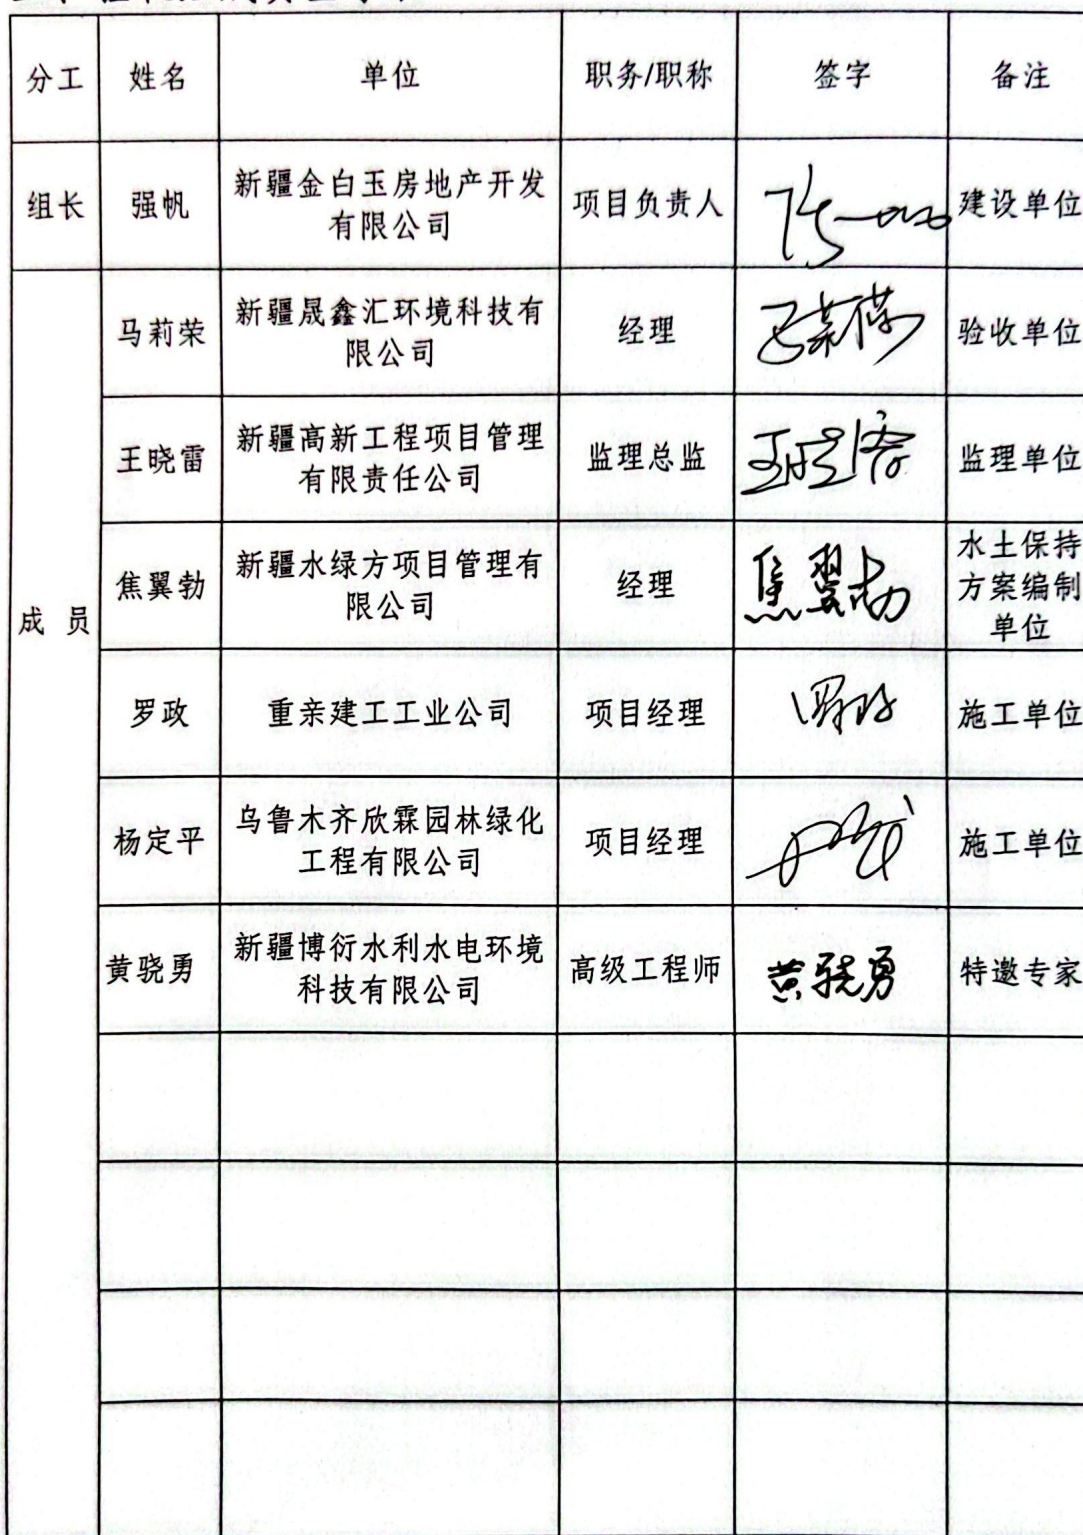 分工 姓名 单位 职务/职称 签字 备注
组长 强帆 新疆金白玉房地产开发
有限公司 项目负责人 建设单位
成员
马莉荣 新疆晟鑫汇环境科技有
限公司 经理 验收单位
王晓雷 新疆高新工程项目管理
有限责任公司 监理总监 监理单位
焦翼勃 新疆水绿方项目管理有
限公司 经理 焦翼勃 水土保持
方案编制
单位
罗政 重亲建工工业公司 项目经理 罗政 施工单位
杨定平 乌鲁木齐欣霖园林绿化
工程有限公司 项目经理 施工单位
黄骁勇 新疆博衍水利水电环境
科技有限公司 高级工程师 黄骁勇 特邀专家